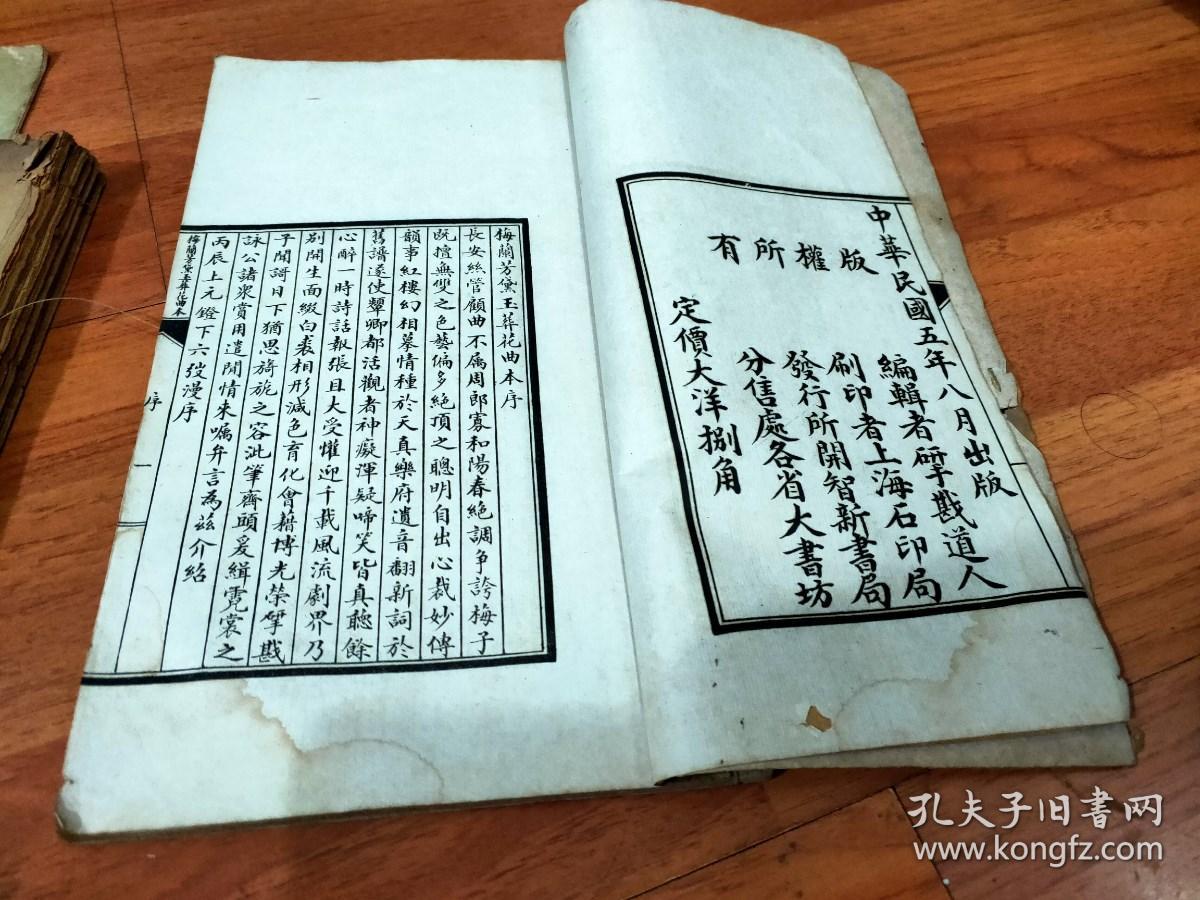 中華民國五年八月出版
編輯者孴戡道人
刷印者上海石印局
版權所有
發行所開智新書局
分售處各省大書坊
定價大洋捌角
梅蘭芳黛玉葬花曲本序
長安絲管顧曲不属周郎寡和陽春絶調争誇梅子
既擅無雙之色藝偏多絶頂之聰明自出心裁妙傳
韻事紅樓幻相摹情種於天真樂府遺音翻新詞於
舊譜遂使顰卿都活觀者神癡渾疑啼笑皆真聽餘
心醉一時詩話報張且大受懽迎千載風流劇界乃
别開生面綴白裘相形減色育化會藉博光榮孴戡
子聞謌日下猶思旖旎之容泚筆齋頭爰緝霓裳之
詠公諸衆賞用遣閒情来嘱弁言為兹介紹
丙辰上元鐙下六弢漫序
梅蘭芳黛玉葬花曲本
序
一
孔夫子旧書网
www.kongfz.com